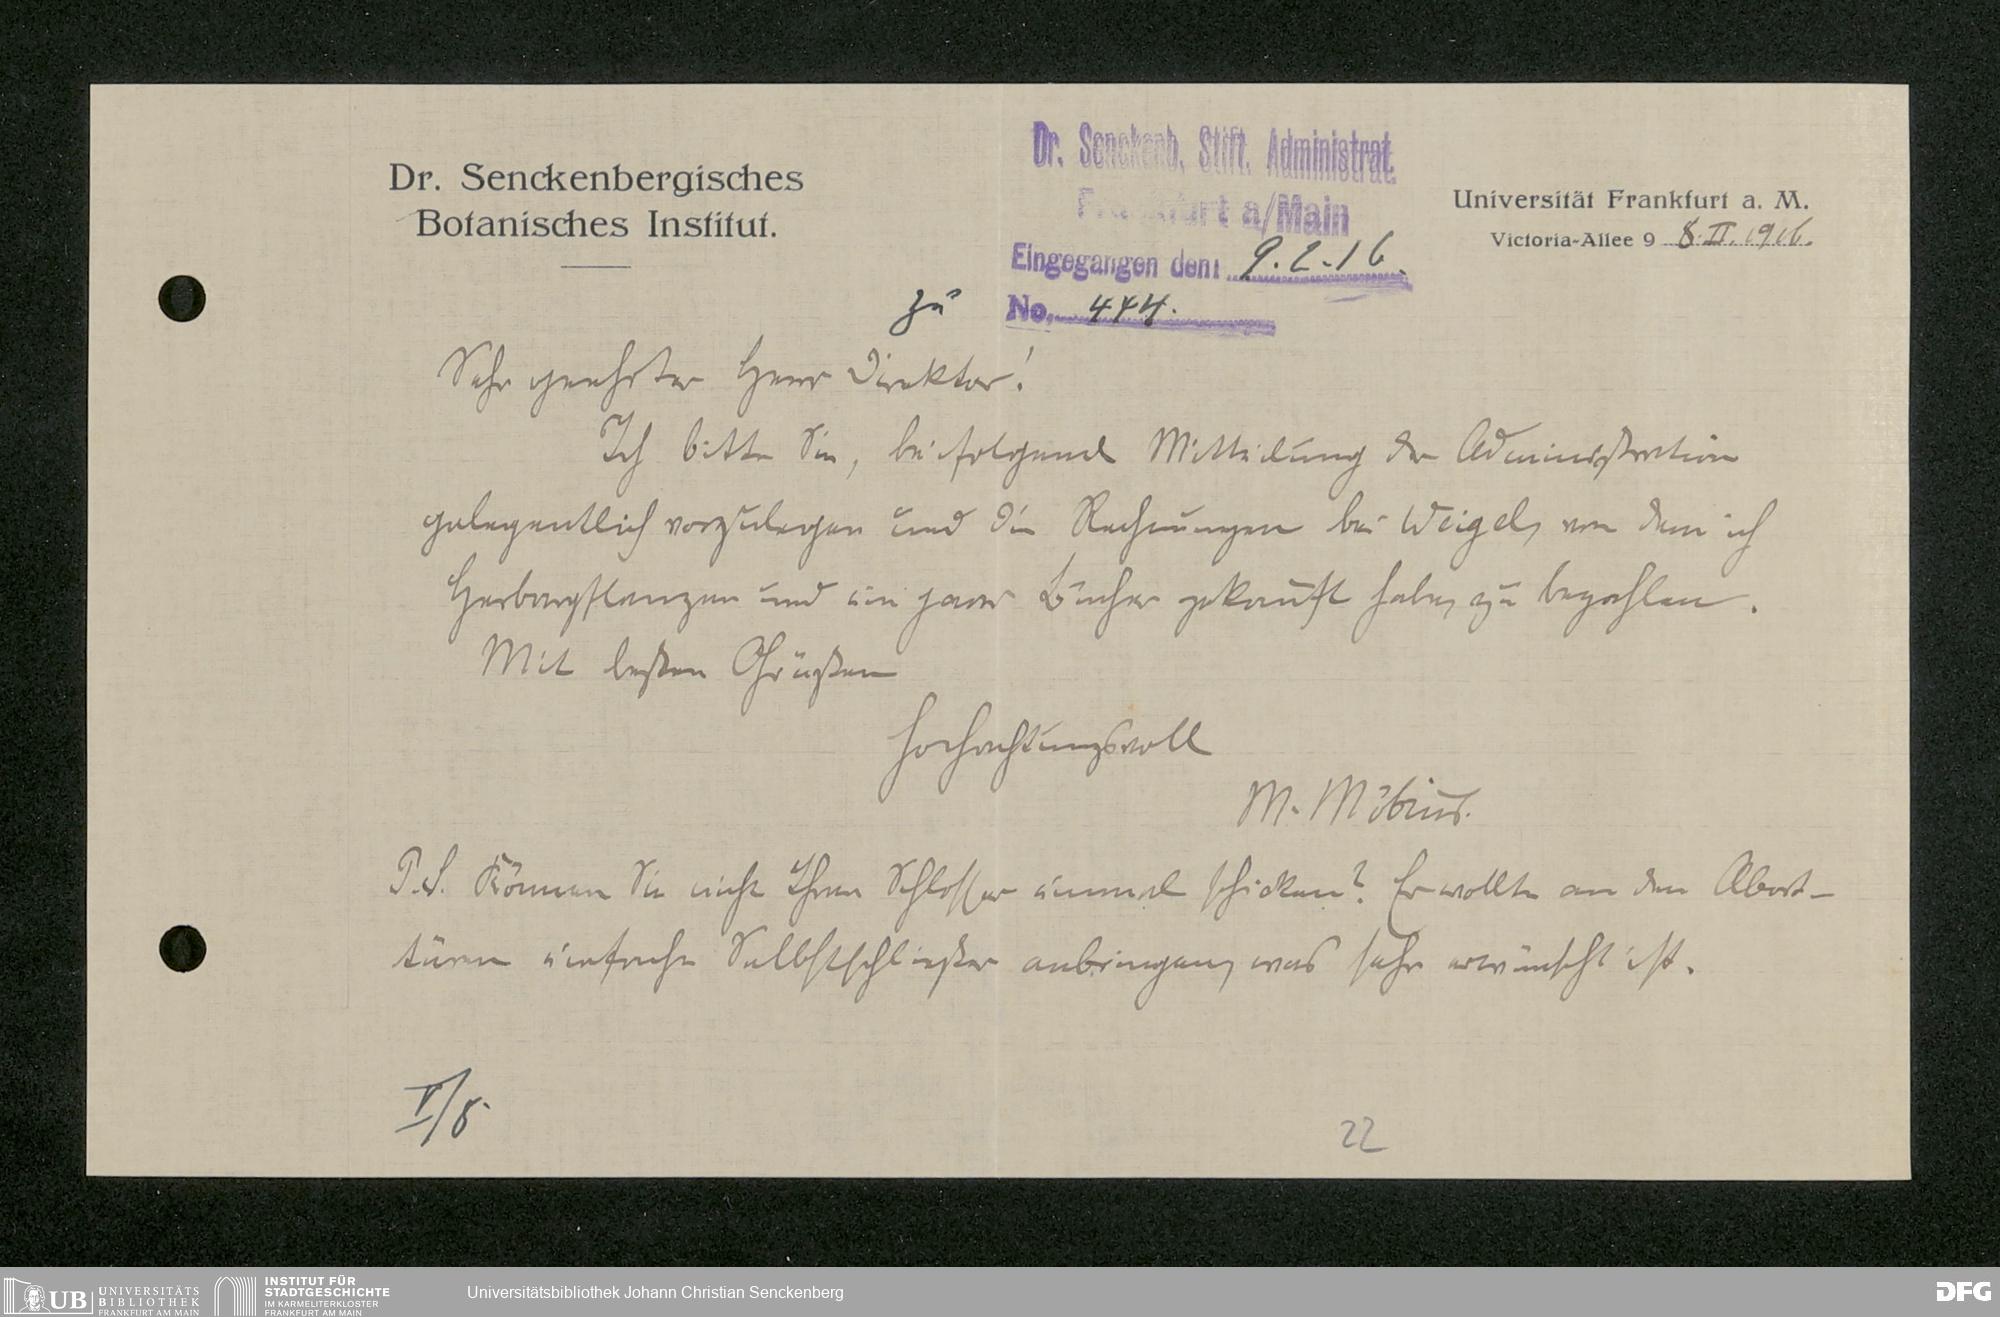 Dr. Senckenbergisches
Botanisches Institut.
Dr. Senckenb. Stift. Administrat.
Frankfurt a/Main
Eingegangen den: 9.2.16.
zu No. 444.
Universität Frankfurt a. M.
Victoria-Allee 9 8.II.1916.
Sehr geehrter Herr Direktor!
Ich bitte Sie, beifolgend Mitteilung der Administration
gelegentlich vorzulegen und die Rechnungen bei Weigel, von dem ich
Herbarpflanzen und ein paar Bücher gekauft habe, zu bezahlen.
Mit besten Grüßen
hochachtungsvoll
M. Möbius.
P.S. Können Sie nicht Ihren Schlosser einmal schicken? Er wollte an den Abort-
türen einfache Selbstschließer anbringen, was sehr erwünscht ist.
V/8.
22
UB UNIVERSITÄTS
BIBLIOTHEK
FRANKFURT AM MAIN
INSTITUT FÜR
STADTGESCHICHTE
IM KARMELITERKLOSTER
FRANKFURT AM MAIN
Universitätsbibliothek Johann Christian Senckenberg
DFG